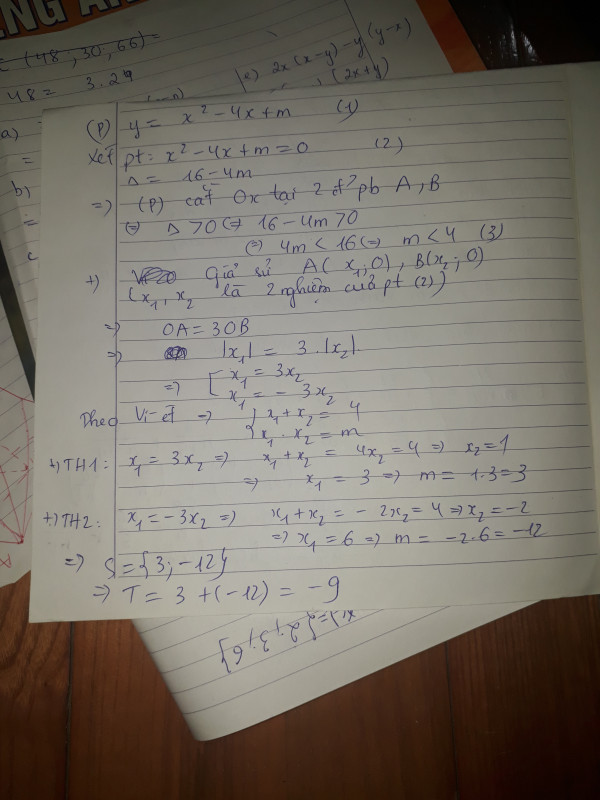 NG AN
= (48; 30; 66) =
48 = 3.24
e) 2x(x-y)-y(y-x)
(2x+y)
a)
=
b)
=
c
(P) y = x² - 4x + m (1)
Xét pt: x² - 4x + m = 0 (2)
Δ = 16 - 4m
=> (P) cắt Ox tại 2 đ? pb A, B
<=> Δ > 0 <=> 16 - 4m > 0
<=> 4m < 16 <=> m < 4 (3)
+) Giả sử A(x₁; 0), B(x₂; 0)
(x₁, x₂ là 2 nghiệm của pt (2))
=> OA = 3OB
=> |x₁| = 3.|x₂|
=> [ x₁ = 3x₂
x₁ = -3x₂
Theo Vi-ét => { x₁ + x₂ = 4
x₁ . x₂ = m
+) TH1: x₁ = 3x₂ => x₁ + x₂ = 4x₂ = 4 => x₂ = 1
=> x₁ = 3 => m = 1.3 = 3
+) TH2: x₁ = -3x₂ => x₁ + x₂ = -2x₂ = 4 => x₂ = -2
=> x₁ = 6 => m = -2.6 = -12
=> S = {3; -12}
=> T = 3 + (-12) = -9
={2; 3; 6}